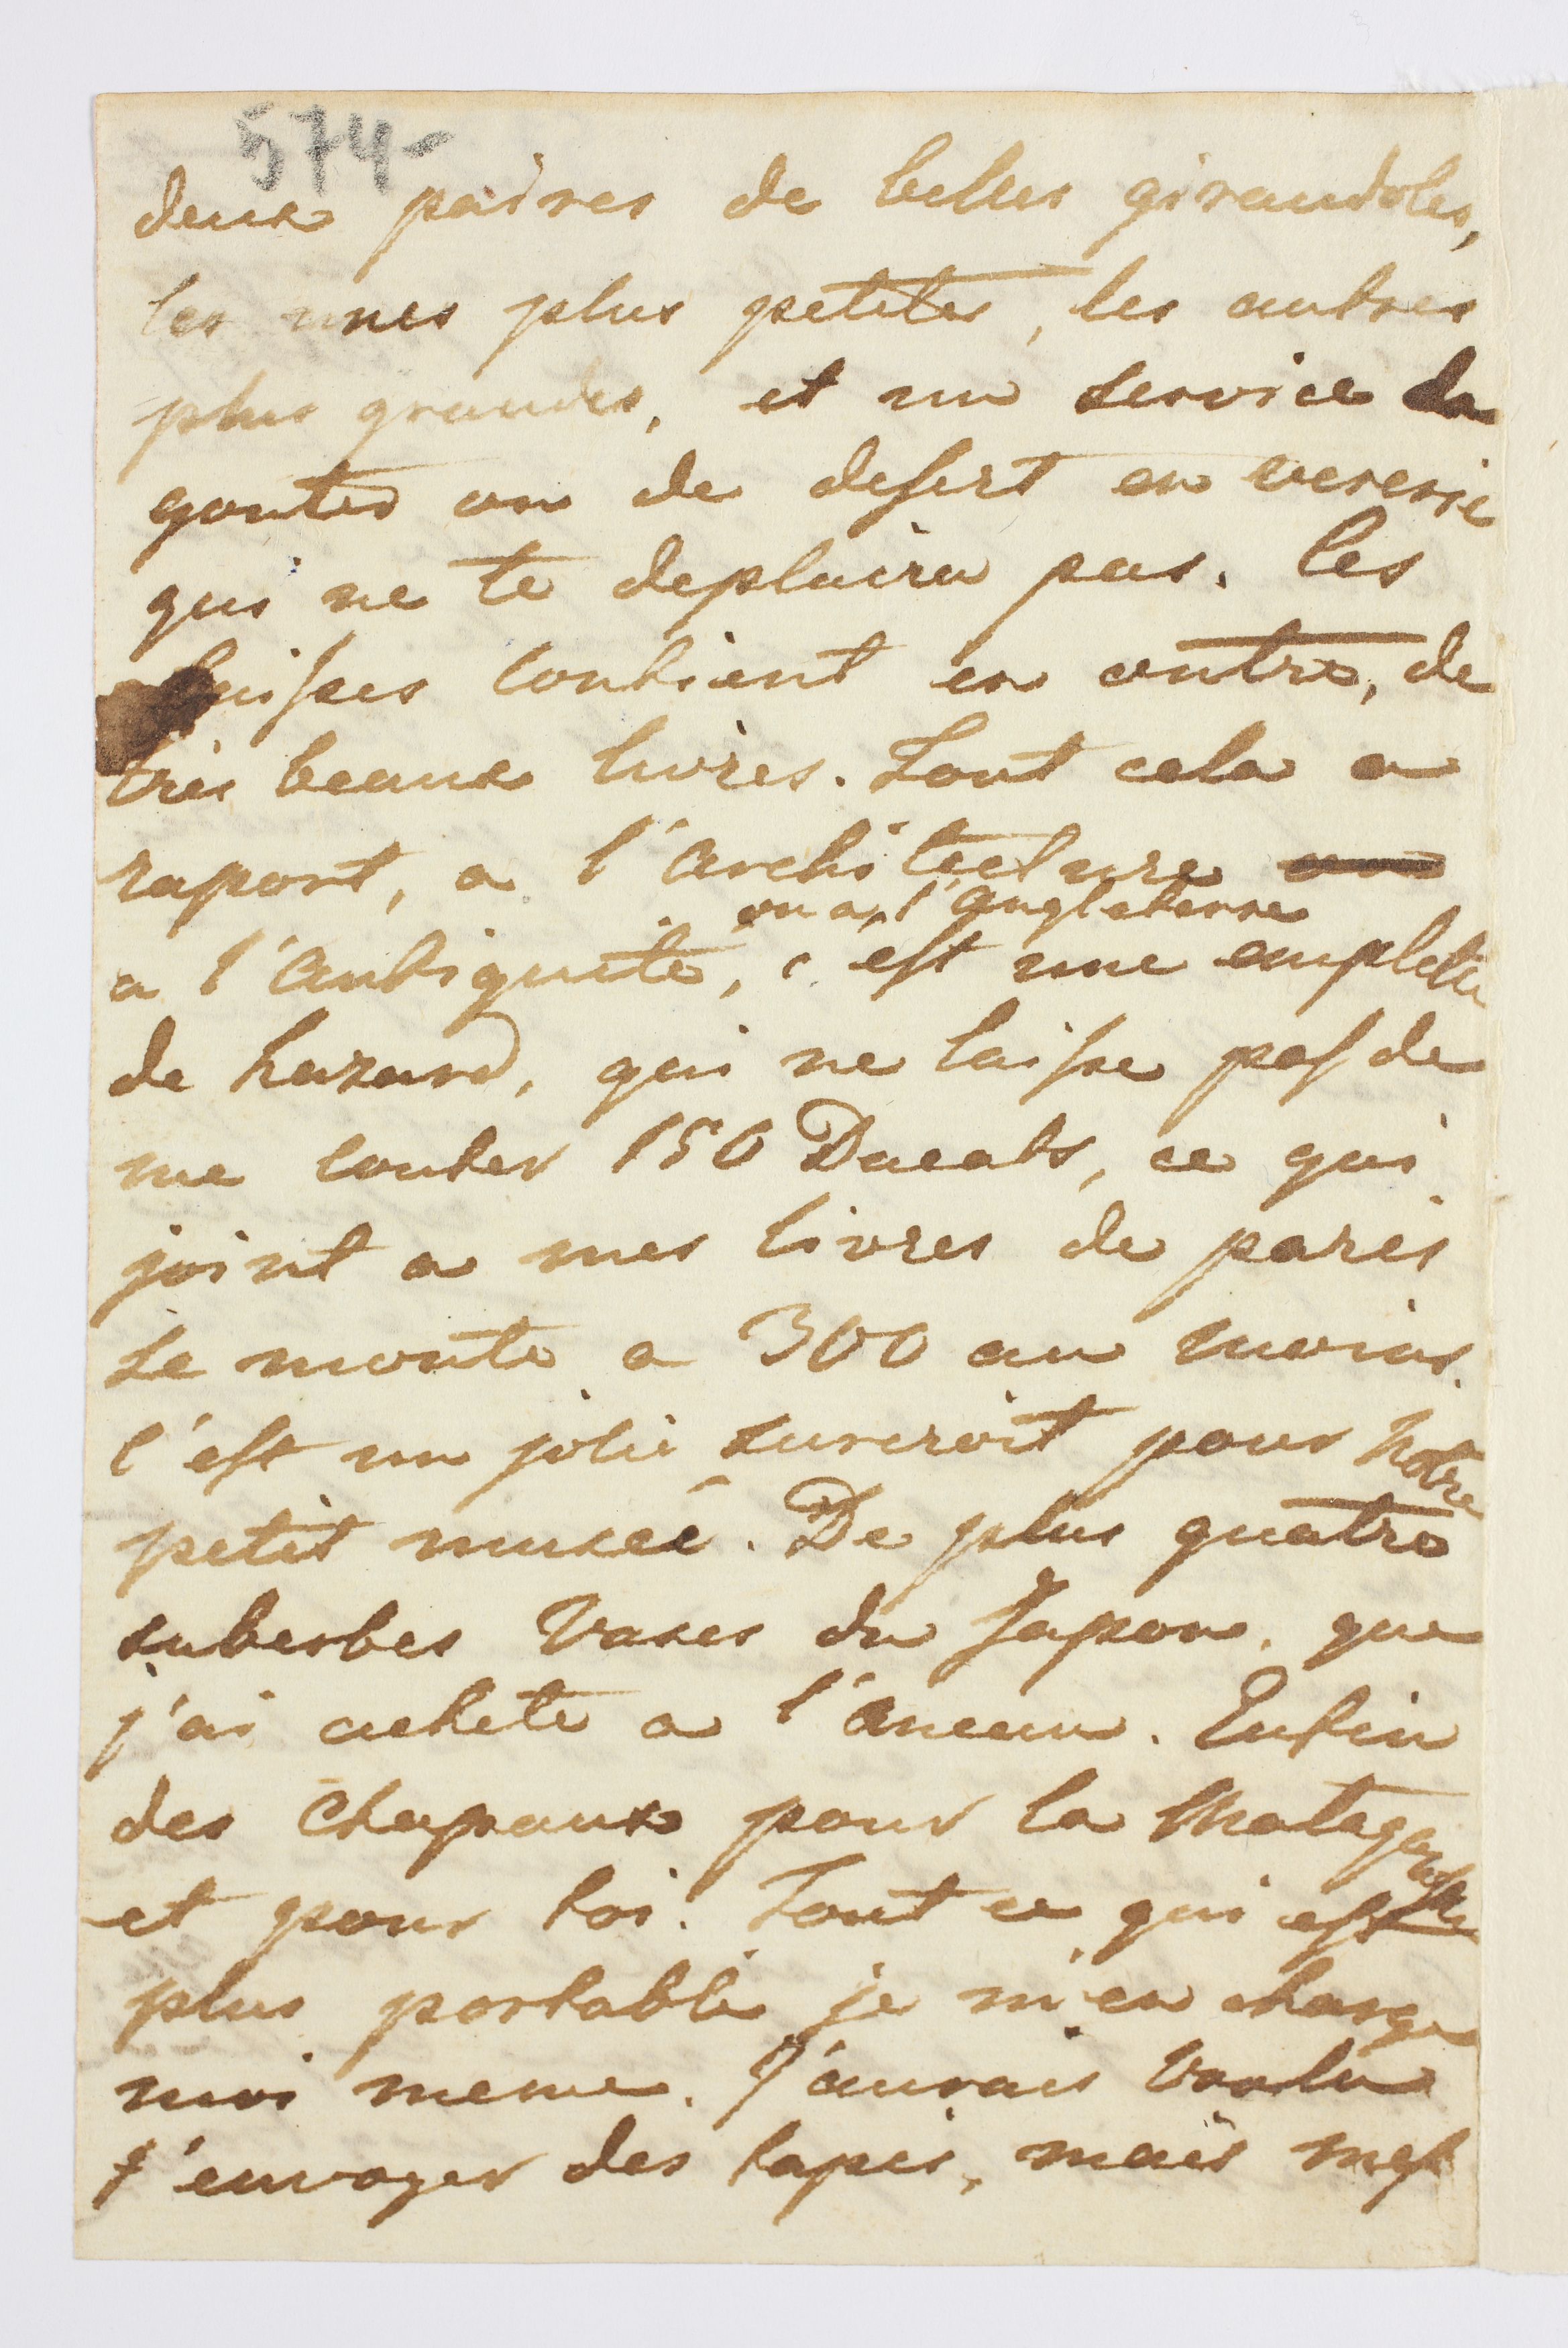 574-
deux paires de belles girandoles,
les unes plus petites, les autres
plus grandes, et un service de
gouter ou de desert en vererie
qui ne te deplaira pas. Les
caisses contient en outre, de
très beaux livres. Tout cela a
raport, a l'architecture ou
ou a l'angleterre
a l'antiquité, c'est une emplette
de hazard, qui ne laisse pas de
me couter 150 Ducats, ce qui
joint a mes livres de paris
se monte a 300 au moins.
C'est un joli surcroit pour notre
petit museé. De plus quatre
suberbes Vases du Japon, que
j'ai acheté a l'ancan. Enfin
des Chapaux pour la
et pour toi. Tout ce qui est
plus portable je m'en charge
moi meme. J'aurais voulu
t'envoyer des tapis, mais